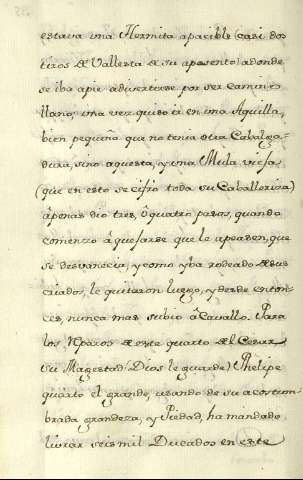 estava una Hermita apacible (casi dos
tiros de Vallesta de su aposento) adonde
se iba apie adivertirse por ser camino
llano; una vez quiso ir en una Aquilla,
bien pequeña que no tenia otra Cabalga-
dura, sino aquesta, y una Mula vieja
(que en esto se cifró toda su Caballeriza)
ápenas dio tres, ó quatro pasos, quando
comenzo á quejarse que le apeasen, que
se desvanecia, y como yba rodeado de sus
criados, le quitaron luego, y desde enton-
ces, nunca mas subio á Cavallo. Para
los Rparos de este quarto de el Cesar
su Magestad (Dios le guarde) Phelipe
quarto el grande, usando de su acostum-
brada grandeza, y Piedad, ha mandado
librar seis mil Ducados en este